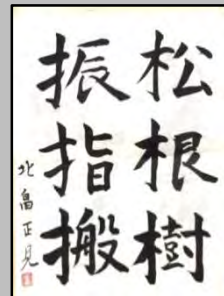 松根樹
振指搬
北畠正見